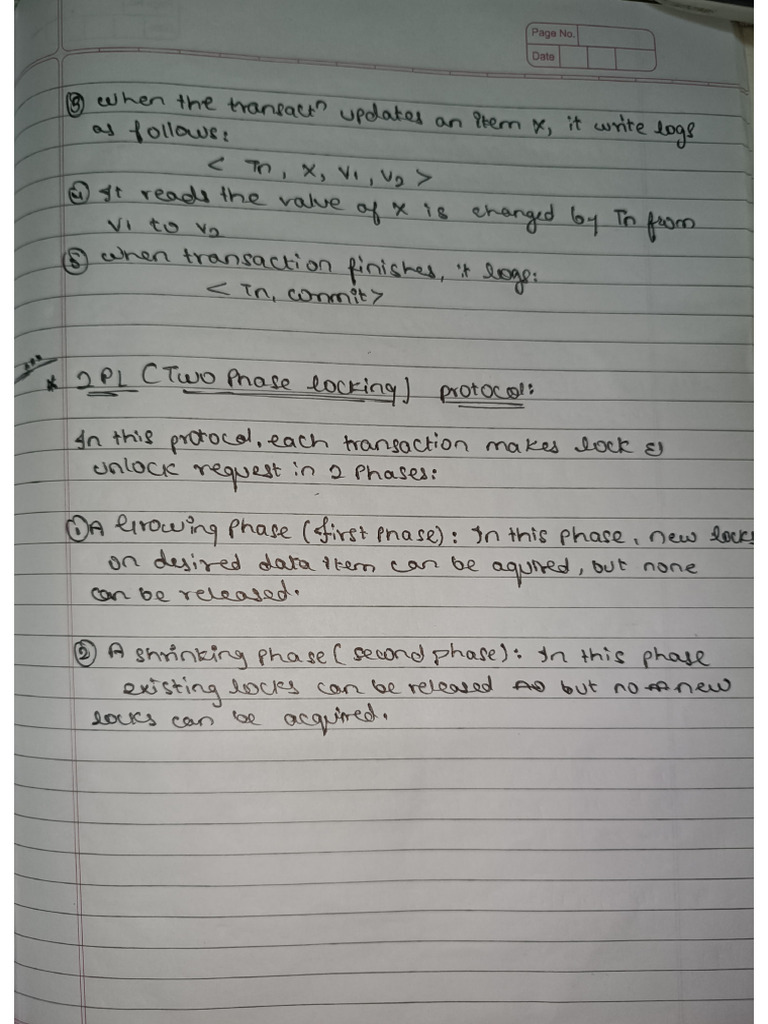 Page No.
Date
③ when the transactⁿ updates an item x, it write logs
as follows:
< Tn, x, v1, v2 >
④ It reads the value of x is changed by Tn from
v1 to v2
⑤ when transaction finishes, it logs:
< Tn, commit>
* 2PL (Two Phase locking) protocol:
In this protocol, each transaction makes lock &
unlock request in 2 Phases:
① A Growing phase (first phase): In this phase, new locks
on desired data item can be aquired, but none
can be released.
② A shrinking phase (second phase): In this phase
existing locks can be released but no new
locks can be acquired.